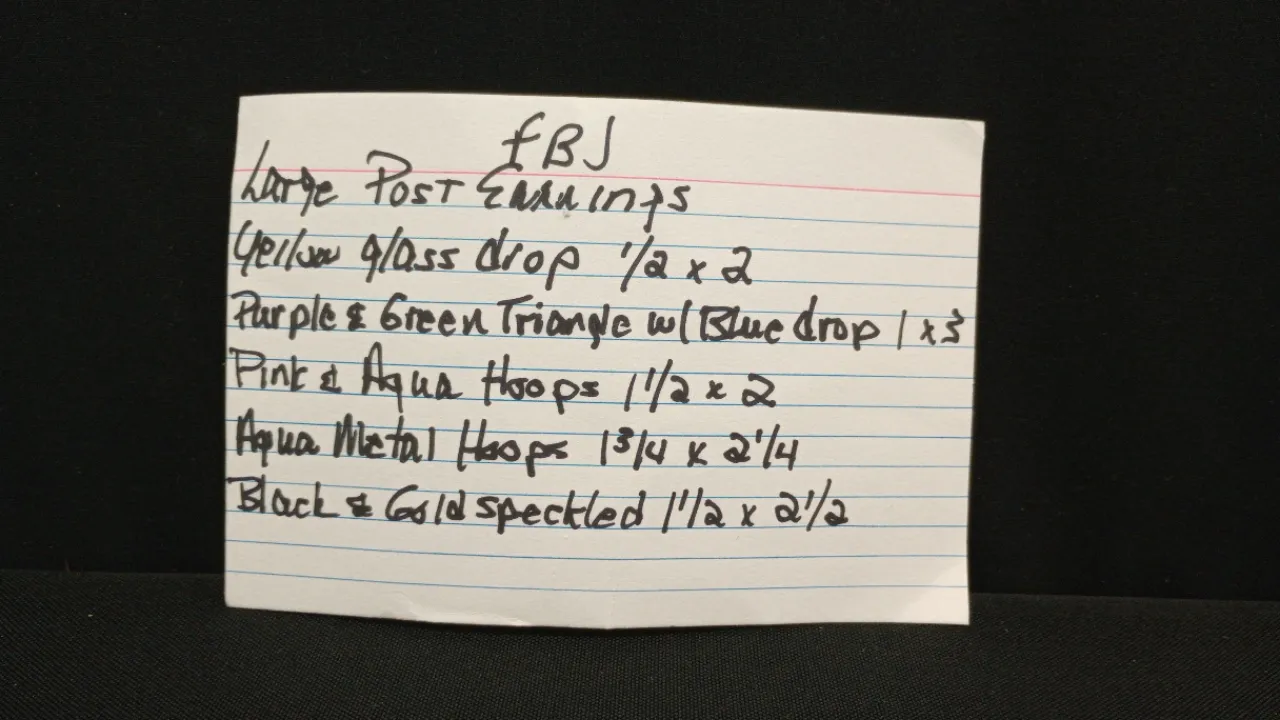 fBJ
Large Post Earrings
Yellow glass drop 1/2 x 2
Purple & Green Triangle w/ Blue drop 1 x 3
Pink & Aqua Hoops 1 1/2 x 2
Aqua Metal Hoops 1 3/4 x 2 1/4
Black & Gold speckled 1 1/2 x 2 1/2